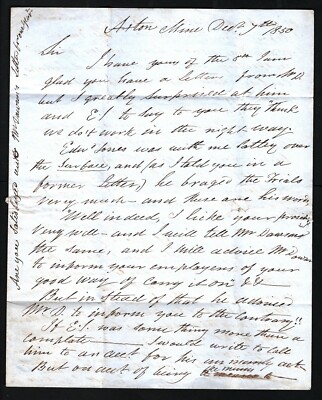 Aston Mine Decr. 7th 1850
Sir
I have yours of the 5th I am
glad you have a letter from Mr D.
but I greatly surprised at him
and E.J. to say to you they think
we do't work in the right way.
Edwd Jones was with me latley over
the Surface, and (as I told you in a
former letter) he braged the Trials
very much - and these are his words
"Well indeed, I licke your proceedg
very well - and I will tell Mr Dawson
the same, and I will advise Mr Dawson
to inform your employers of your
good way of carry it on" &c
But in stead of that he advised
Mr D. to inform you to the contrary!!
If E.J. was some thing more than a
I would write to call
him to an acct for his un manly act
But on acct of being
Are you satisfied with Mr Dawson's letter